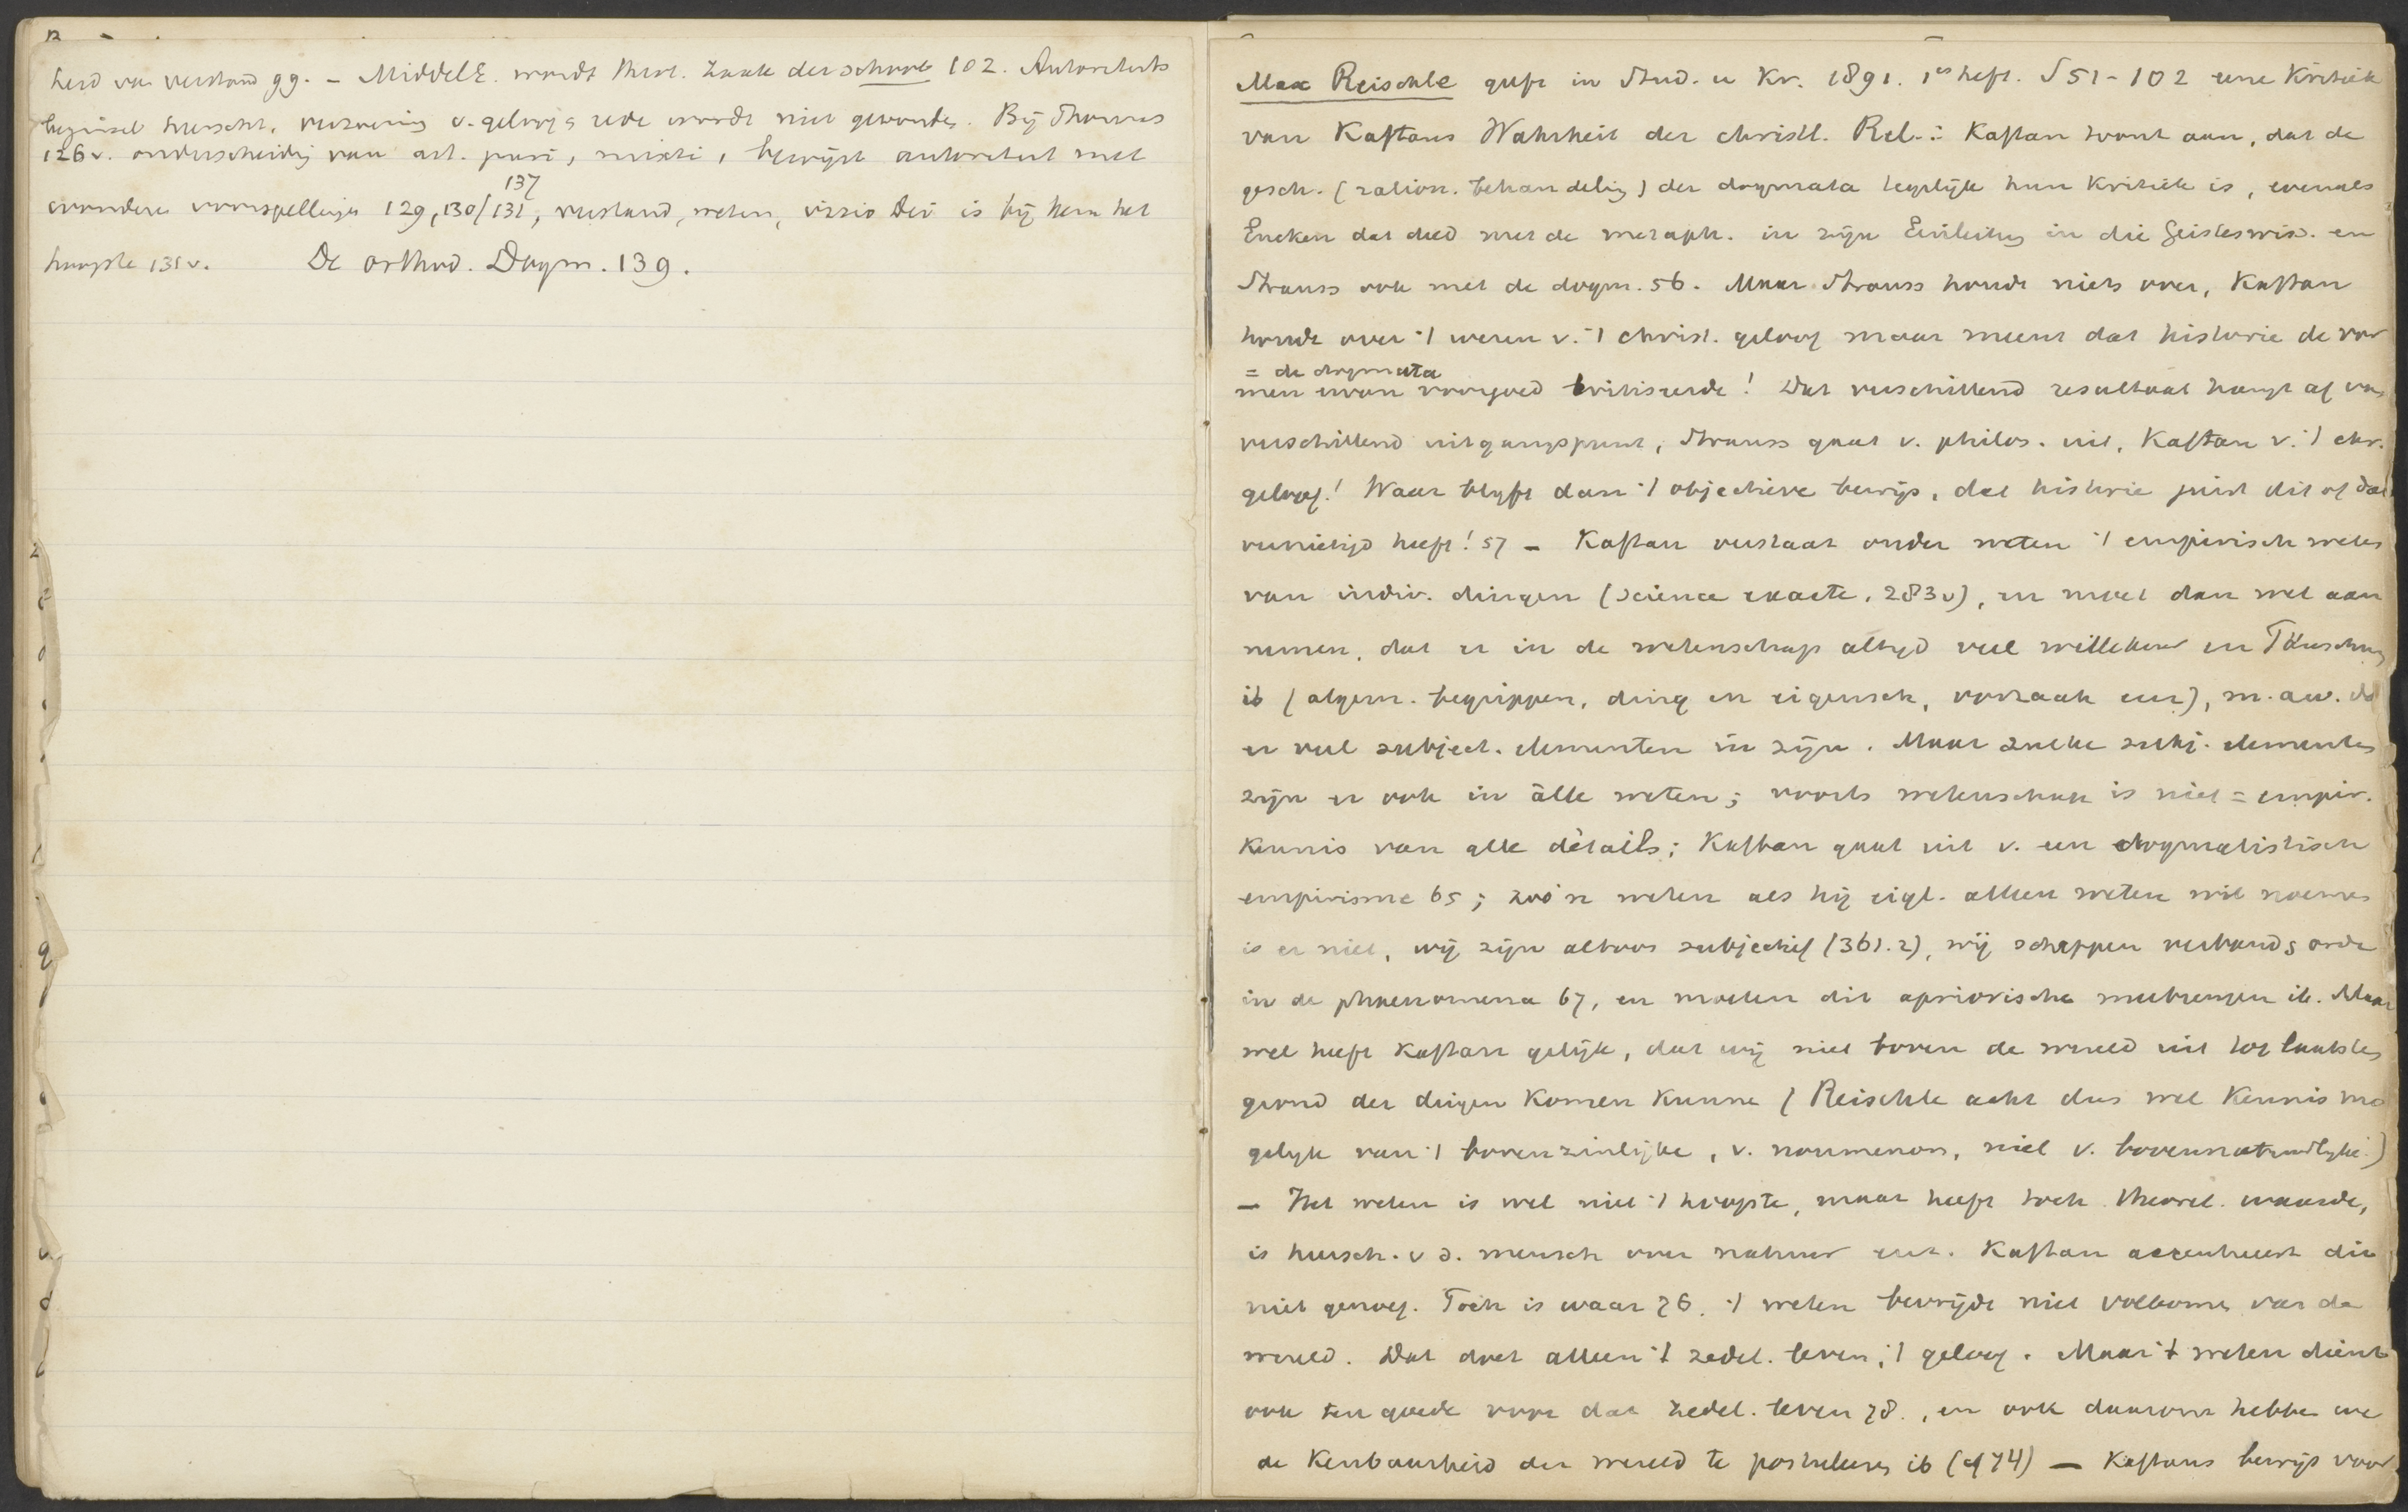 heid van verstand 99. – MiddelE. wordt theol. zaak der school 102. Autoriteits
beginsel heerscht, verzoening v. geloof & rede wordt niet gevonden. Bij Thomas
126v. onderscheiding van art. puri, mixti, bewijst autoriteit met
137
wonderen voorspellingen 129, 130/131, verstand, weten, visio Dei is bij hem het
hoogste 131v. De orthod. Dogm. 139.
Max Reischle geeft in Stud. u Kr. 1891. 1es heft. S 51-102 eene Kritiek
van Kaftans Wahrheit der christl. Rel.: Kaftan toont aan, dat de
gesch. (ration. behandeling) der dogmata tegelijk hun Kritiek is, evenals
Eucken dat deed met de metaph. in zijn Einleitung in die Geisteswiss. en
Strauss ook met de dogm. 56. Maar Strauss houdt niets over, Kaftan
houdt over 't wezen v. 't christ. geloof maar meent dat historie de vor
= de dogmata
men ervan voorgoed kritiseerde! Dat verschillend resultaat hangt af van
verschillend uitgangspunt, Strauss gaat v. philos. uit, Kaftan v. 't chr.
geloof! Waar blijft dan 't objectieve bewijs, dat historie juist dit of dat
vernietigd heeft! 57 – Kaftan verstaat onder weten 't empirisch weten
van indiv. dingen (science exacte, 283v), en moet dan wel aan
nemen, dat er in de wetenschap altijd veel willekeur en Täuschung
ib (algem. begrippen, ding en eigensch, oorzaak enz), m.a.w. dat
er veel subject. elementen in zijn. Maar zulke subj. elementen
zijn er ook in àlle weten; voorts wetenschap is niet = empir.
Kennis van alle détails; Kaftan gaat uit v. een dogmatistisch
empirisme 65; zoo'n weten als hij eigl. alleen weten wil noemen
is er niet, wij zijn altoos subjectief (361.2), wij scheppen verband & orde
in de phaenomena 67, en moeten dit apriorische meebrengen ib. Maar
wel heeft Kaftan gelijk, dat wij niet boven de wereld uit tot laatsten
grond der dingen Komen Kunnen (Reischle acht dus wel Kennis mo
gelijk van 't bovenzinlijke, v. noumenon, niet v. bovennatuurlijke.)
– Het weten is wel niet 't hoogste, maar heeft toch theoret. waarde,
is heersch. v d. mensch over natuur enz. Kaftan accentueert dit
niet genoeg. Toch is waar 76, 't weten bevrijdt niet volkomen van de
wereld. Dat doet alleen 't zedel. leven, 't geloof. Maar 't weten dient
ook ten goede voor dat zedel. leven 78., en ook daarom hebben we
de Kenbaarheid der wereld te postuleeren ib (cf 74) – Kaftans bewijs voor